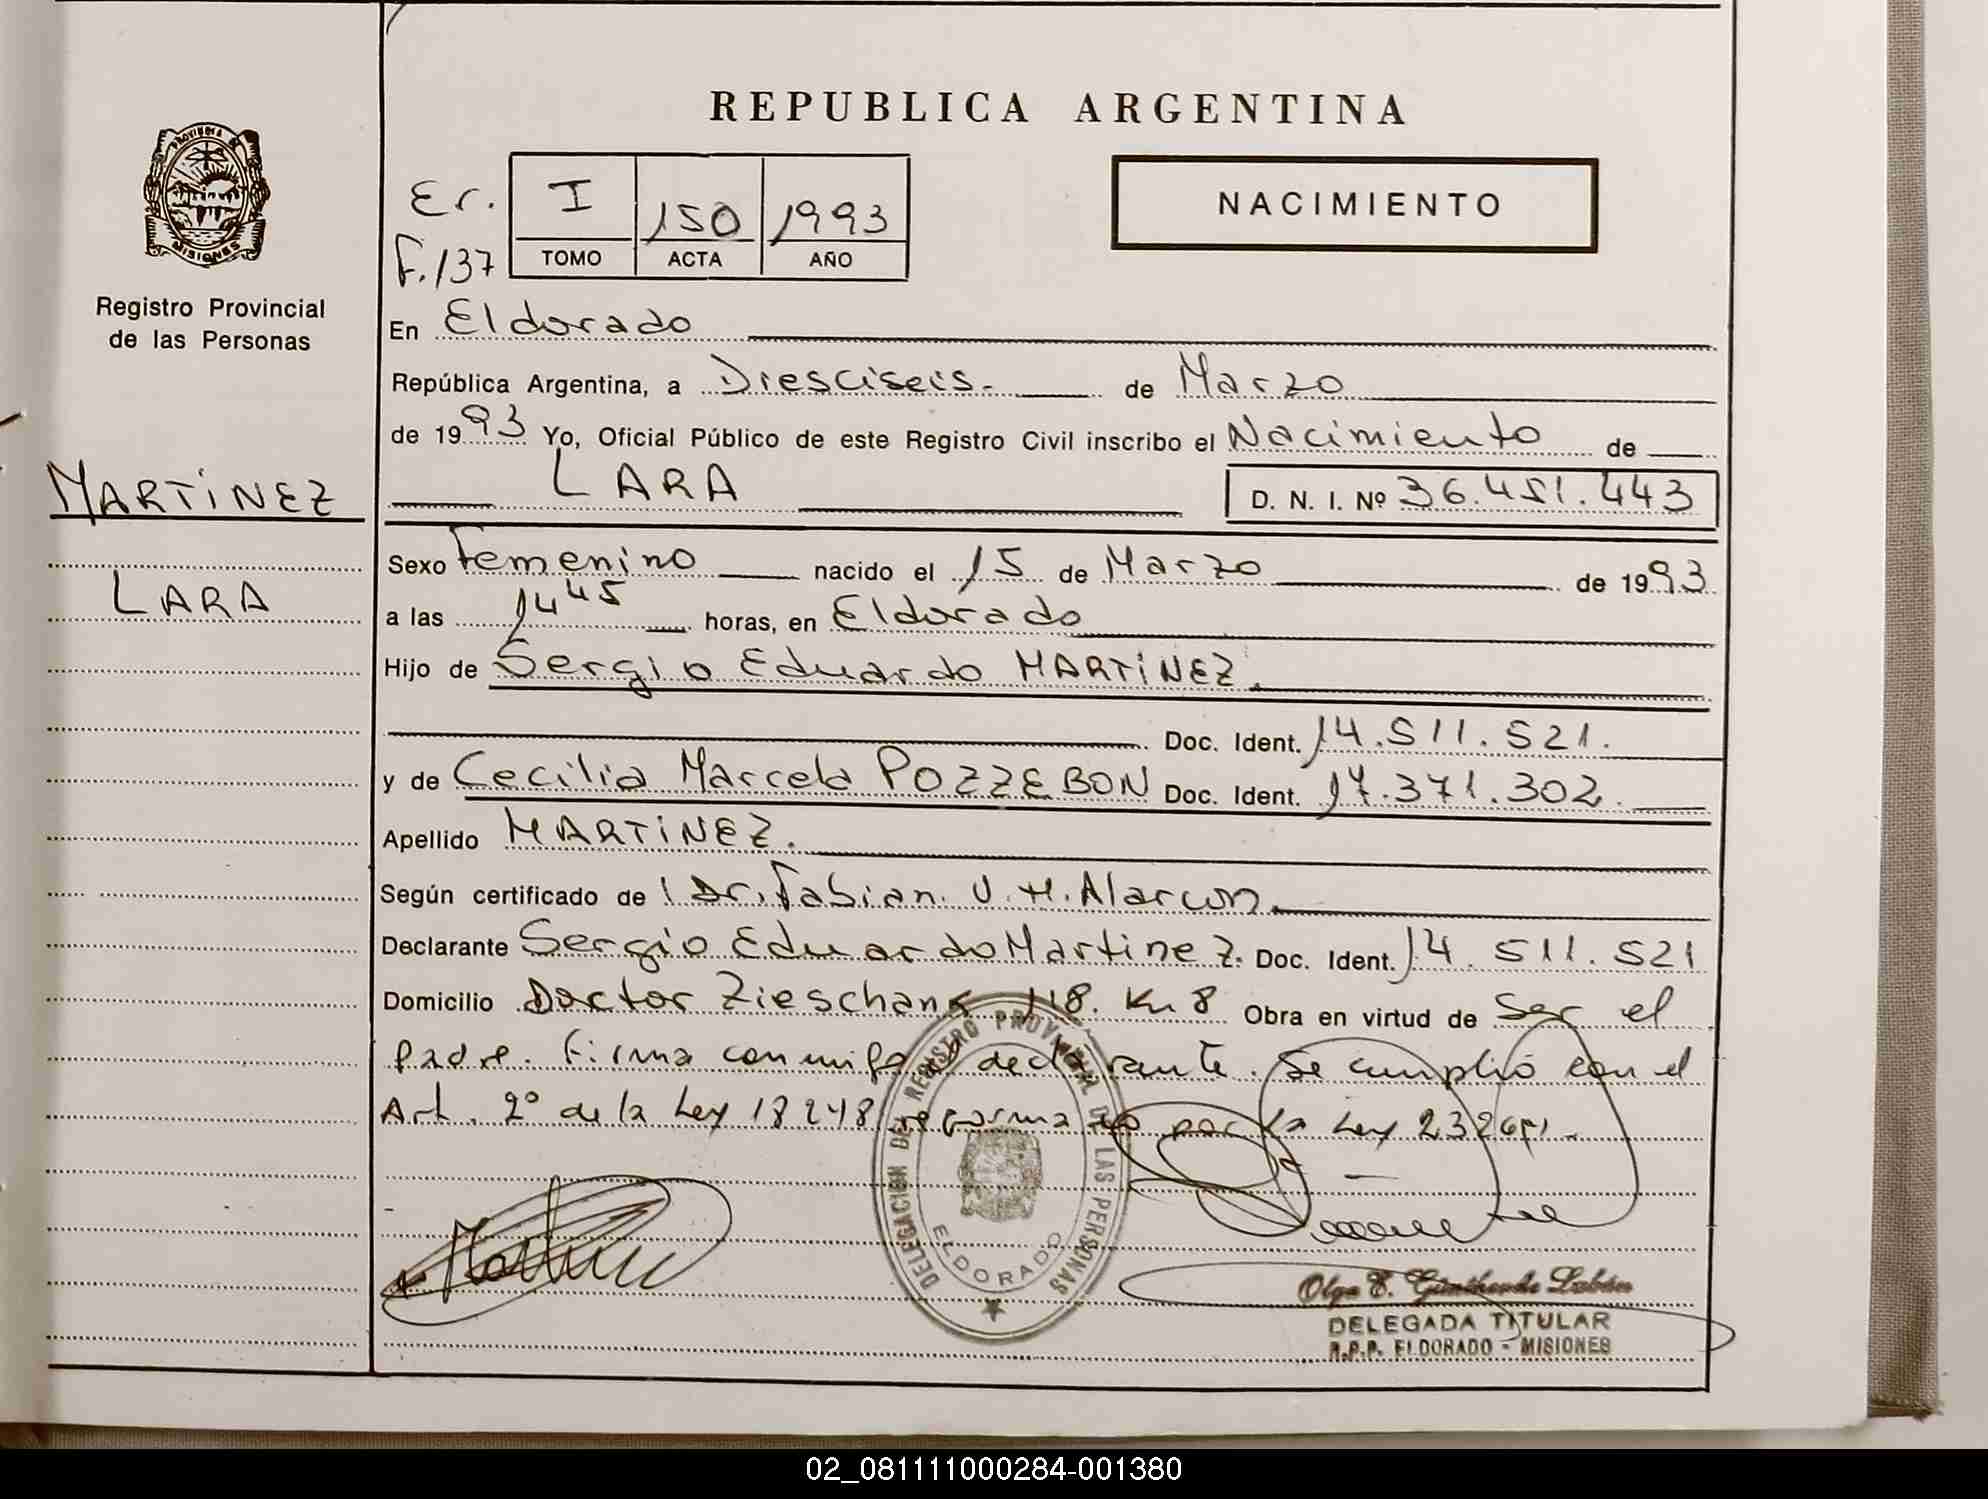 REPUBLICA ARGENTINA
PROVINCIA DE
MISIONES
Registro Provincial
de las Personas
Er.
F.137
I
150
1993
TOMO
ACTA
AÑO
NACIMIENTO
En Eldorado
República Argentina, a Diesciseis. de Marzo
de 1993 Yo, Oficial Público de este Registro Civil inscribo el Nacimiento de
LARA D. N. I. Nº 36.451.443
MARTiNEZ
LARA
Sexo Femenino nacido el 15 de Marzo de 1993
a las 1445 horas, en Eldorado
Hijo de Sergio Eduardo MARTiNEZ.
Doc. Ident. 14.511.521.
y de Cecilia Marcela POZZEBON Doc. Ident. 17.371.302.
Apellido MARTiNEZ.
Según certificado de l Dr. Fabian. V. H. Alarcon.
Declarante Sergio Eduardo Martinez. Doc. Ident. 14.511.521
Domicilio Doctor Zieschank 118. Km 8 Obra en virtud de Ser el
Padre. Firma conmigo el declarante. Se cumplió con el
Art. 2º de la Ley 18248 reformado por la Ley
DELEGACION DEL REGISTRO PROVINCIAL DE LAS PERSONAS
ELDORADO
Olga E.
DELEGADA TITULAR
R.P.P. ELDORADO - MISIONES
02_081111000284-001380